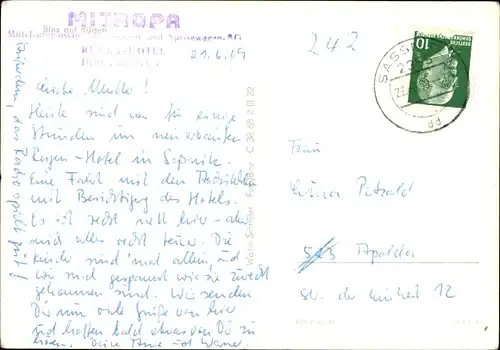 MITROPA
Binz auf Rügen
Mitteleuropäische Schlaf- und Speisewagen AG
RÜGEN-HOTEL
21.6.69
242
SASSNITZ
10
DEUTSCHE
Liebe Mutti!
Heute sind wir für einige
Stunden im neuerbauten
Rügen-Hotel in Saßnitz.
Eine Fahrt mit dem
mit Besichtigung des Hotels.
Es ist recht nett hier - aber
und alles recht teuer. Die
Kinder sind mal allein, und
wir sind gespannt wie sie zurecht
gekommen sind. Wir senden
Dir nun viele Grüße von hier
und hoffen bald etwas von Dir zu
hören. Deine und Werner
das Radio spielt gut!
Frau
Petzold
Apolda
Str. der Einheit 12
C 3668 2 III 22